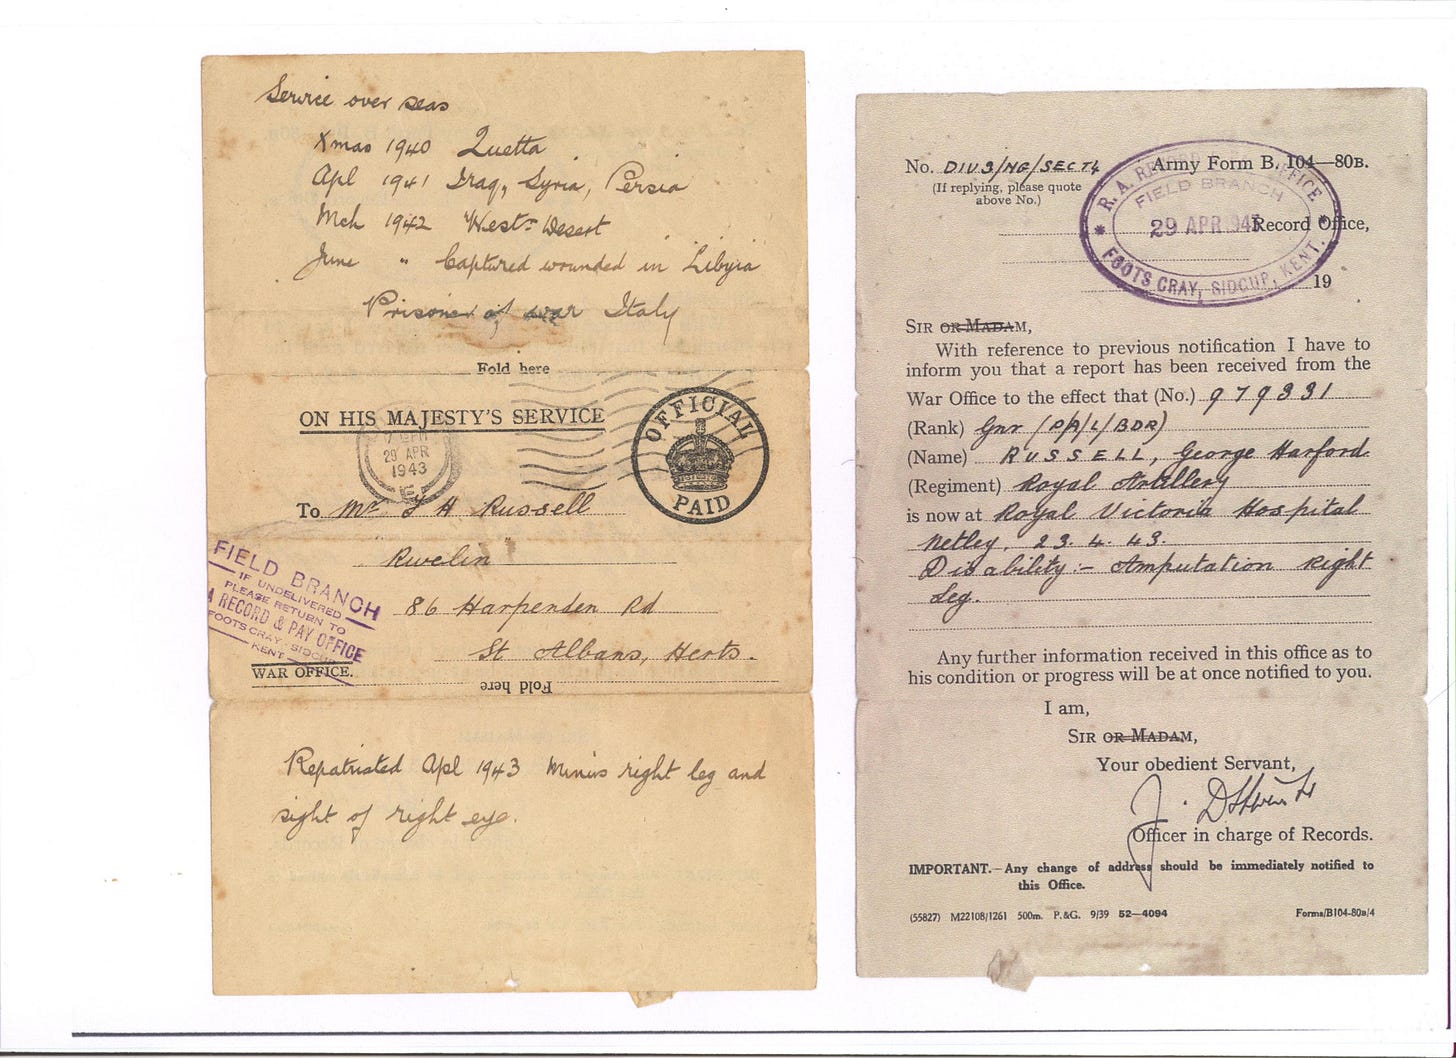 Service over seas
Xmas 1940 Quetta
Apl 1941 Iraq, Syria, Persia
Mch 1942 West:n Desert
June " Captured wounded in Libyia
Prisoner of war Italy
Fold here
ON HIS MAJESTY'S SERVICE
OFFICIAL
PAID
29 APR
1943
E
To Mr H Russell
"Rwelin"
86 Harpenden Rd
St Albans, Herts.
FIELD BRANCH
IF UNDELIVERED
PLEASE RETURN TO
A RECORD & PAY OFFICE
FOOTS CRAY, SIDCUP
KENT
WAR OFFICE.
Fold here
Repatriated Apl 1943 Minus right leg and
sight of right eye.
No. DIV3/NG/SECT4 Army Form B. 104—80B.
(If replying, please quote
above No.)
R. A. OFFICE
FIELD BRANCH
29 APR 1943
FOOTS CRAY, SIDCUP, KENT.
Record Office,
19
SIR OR MADAM,
With reference to previous notification I have to
inform you that a report has been received from the
War Office to the effect that (No.) 979331
(Rank) Gnr (P/A/L/BDR)
(Name) RUSSELL, George Harford
(Regiment) Royal Artillery
is now at Royal Victoria Hospital
Netley, 23.4.43.
Disability:- Amputation Right
Leg.
Any further information received in this office as to
his condition or progress will be at once notified to you.
I am,
SIR OR MADAM,
Your obedient Servant,
Officer in charge of Records.
IMPORTANT.—Any change of address should be immediately notified to
this Office.
(55827) M22108/1261 500m. P.&G. 9/39 52—4094 Forms/B104-80B/4